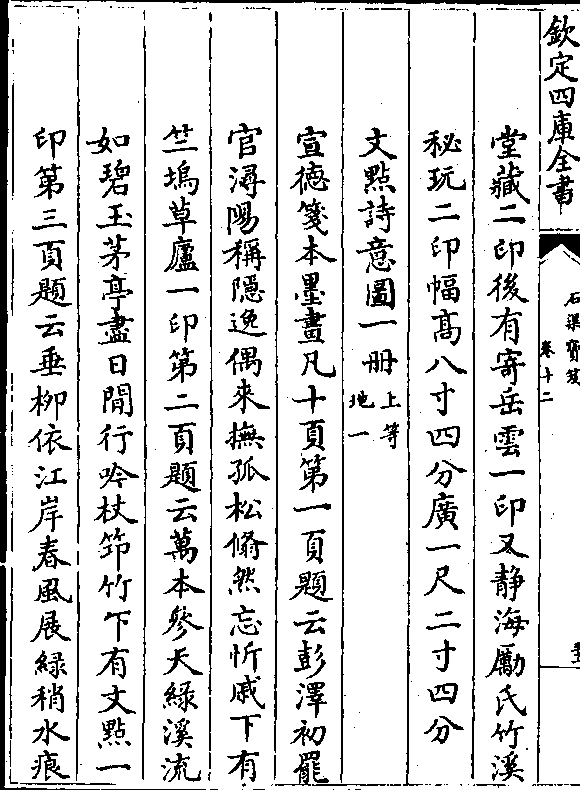 欽定四庫全書
石渠寳笈
卷十二
堂藏二印後有寄岳雲一印又静海勵氏竹溪
秘玩二印幅髙八寸四分廣一尺二寸四分
文點詩意圖一册上等
地一
宣徳箋本墨畫凡十頁第一頁題云彭澤初罷
官潯陽稱隱逸偶來撫孤松翛然忘忻戚下有
竺塢草廬一印第二頁題云萬本參天綠溪流
如碧玉茅亭盡日閒行吟杖笻竹下有文點一
印第三頁題云垂柳依江岸春風展綠稍水痕